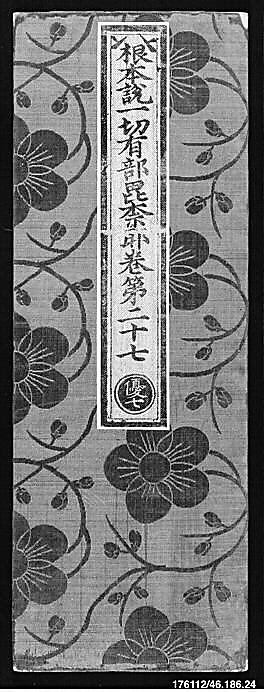 根本說一切有部毘柰耶卷第二十七
優七
176112/46.186.24